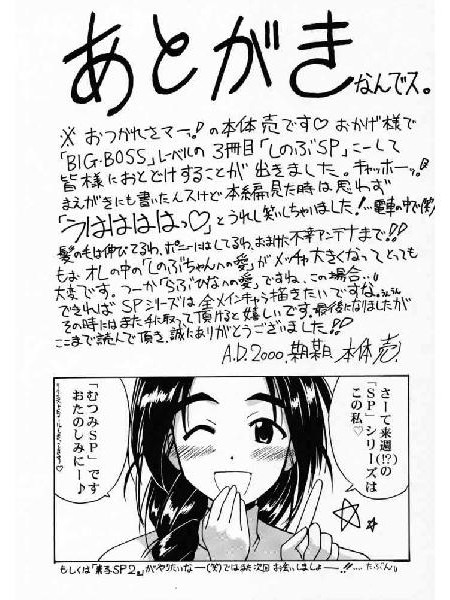 あとがきなんでス。
※おつかれさマー。!の本体売です♡おかげ様で
「BIG・BOSS」レーベルの3冊目「しのぶSP」こーして
皆様におとどけすることが出きました。キャッホーッ!!
まえがきにも書いたんスけど本編見た時は思わず
「うはははは。♡」とうれし笑いしちゃいました!…電車の中で(笑)
髪の毛は伸びてるわ、ポニーにはしてるわ、おまけに不幸アンテナまで!!
もォオレの中の「しのぶちゃんへの愛」がメッチャ大きくなってとっても
大変です。つーか「しのぶひなへの愛」ですね、この場合…。
できればSPシリーズは全メインキャラ描きたいですなー。
その時にはまた手に取って頂けると嬉しいです。最後になりましたが
ここまで読んで頂き、誠にありがとうございました!!
A.D.2000. 本体売
さーて来週(!?)の
「SP」シリーズは
この私♡
「むつみSP」です
おたのしみにー♪
もしくは「素子SP2」がやりたいなー(笑)ではまた次回お会いしましょー!!…たぶん